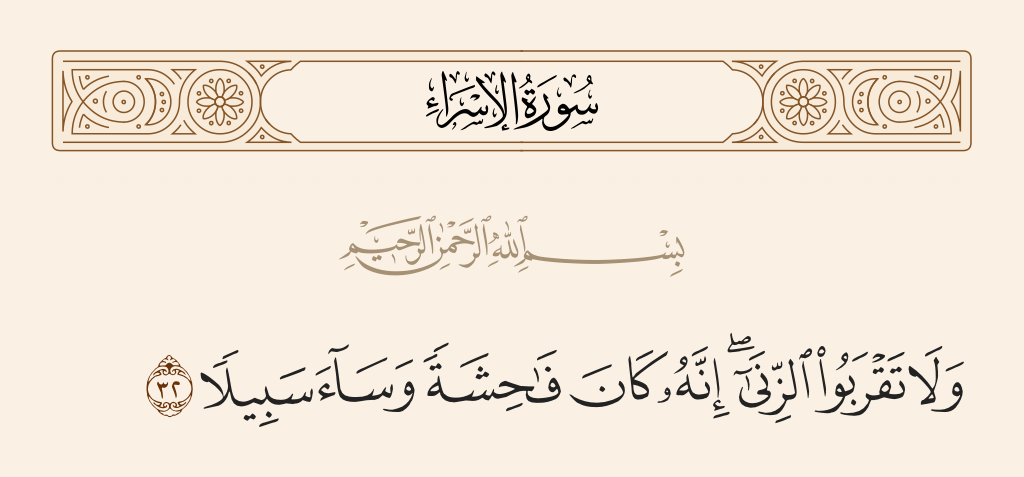 سُورَةُ الإِسْرَاءِ
بِسْمِ ٱللَّهِ ٱلرَّحْمَٰنِ ٱلرَّحِيمِ
وَلَا تَقْرَبُوا۟ ٱلزِّنَىٰٓ ۖ إِنَّهُۥ كَانَ فَـٰحِشَةً وَسَآءَ سَبِيلًا ٣٢